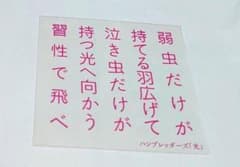 弱虫だけが
持てる羽広げて
泣き虫だけが
持つ光へ向かう
習性で飛べ
ハンブレッダーズ「光」